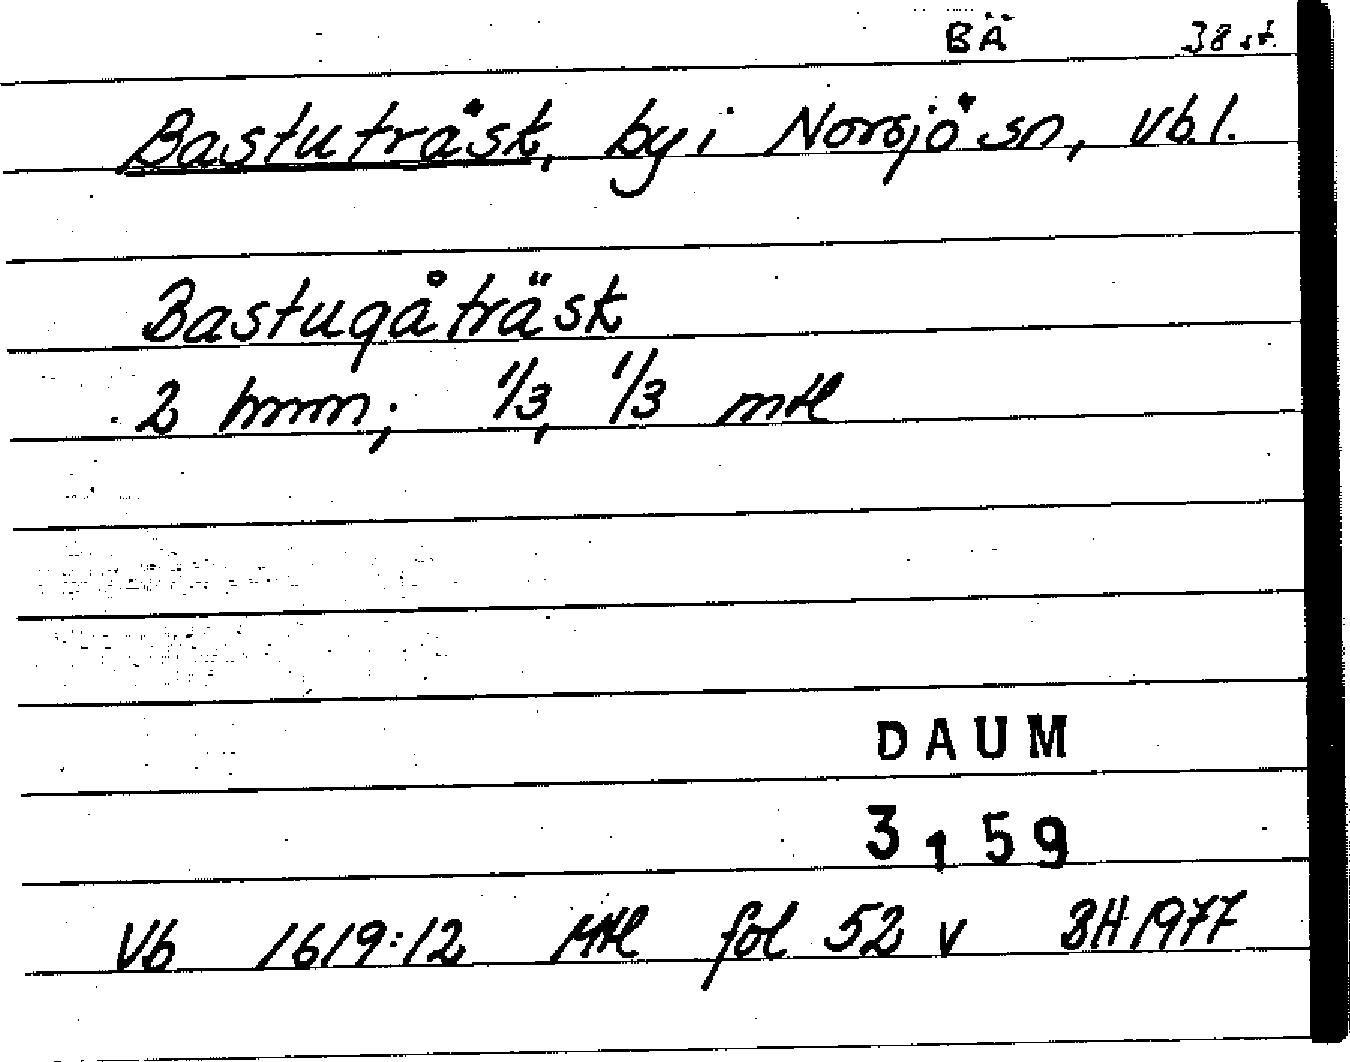 BÄ 38 st.
Bastuträsk, by i Norsjö sn, Vb.l.
Bastugåträsk
2 hmn; 1/3, 1/3 mtl
DAUM
3159
Vb 1619:12 Mtl fol 52 v BH 1977